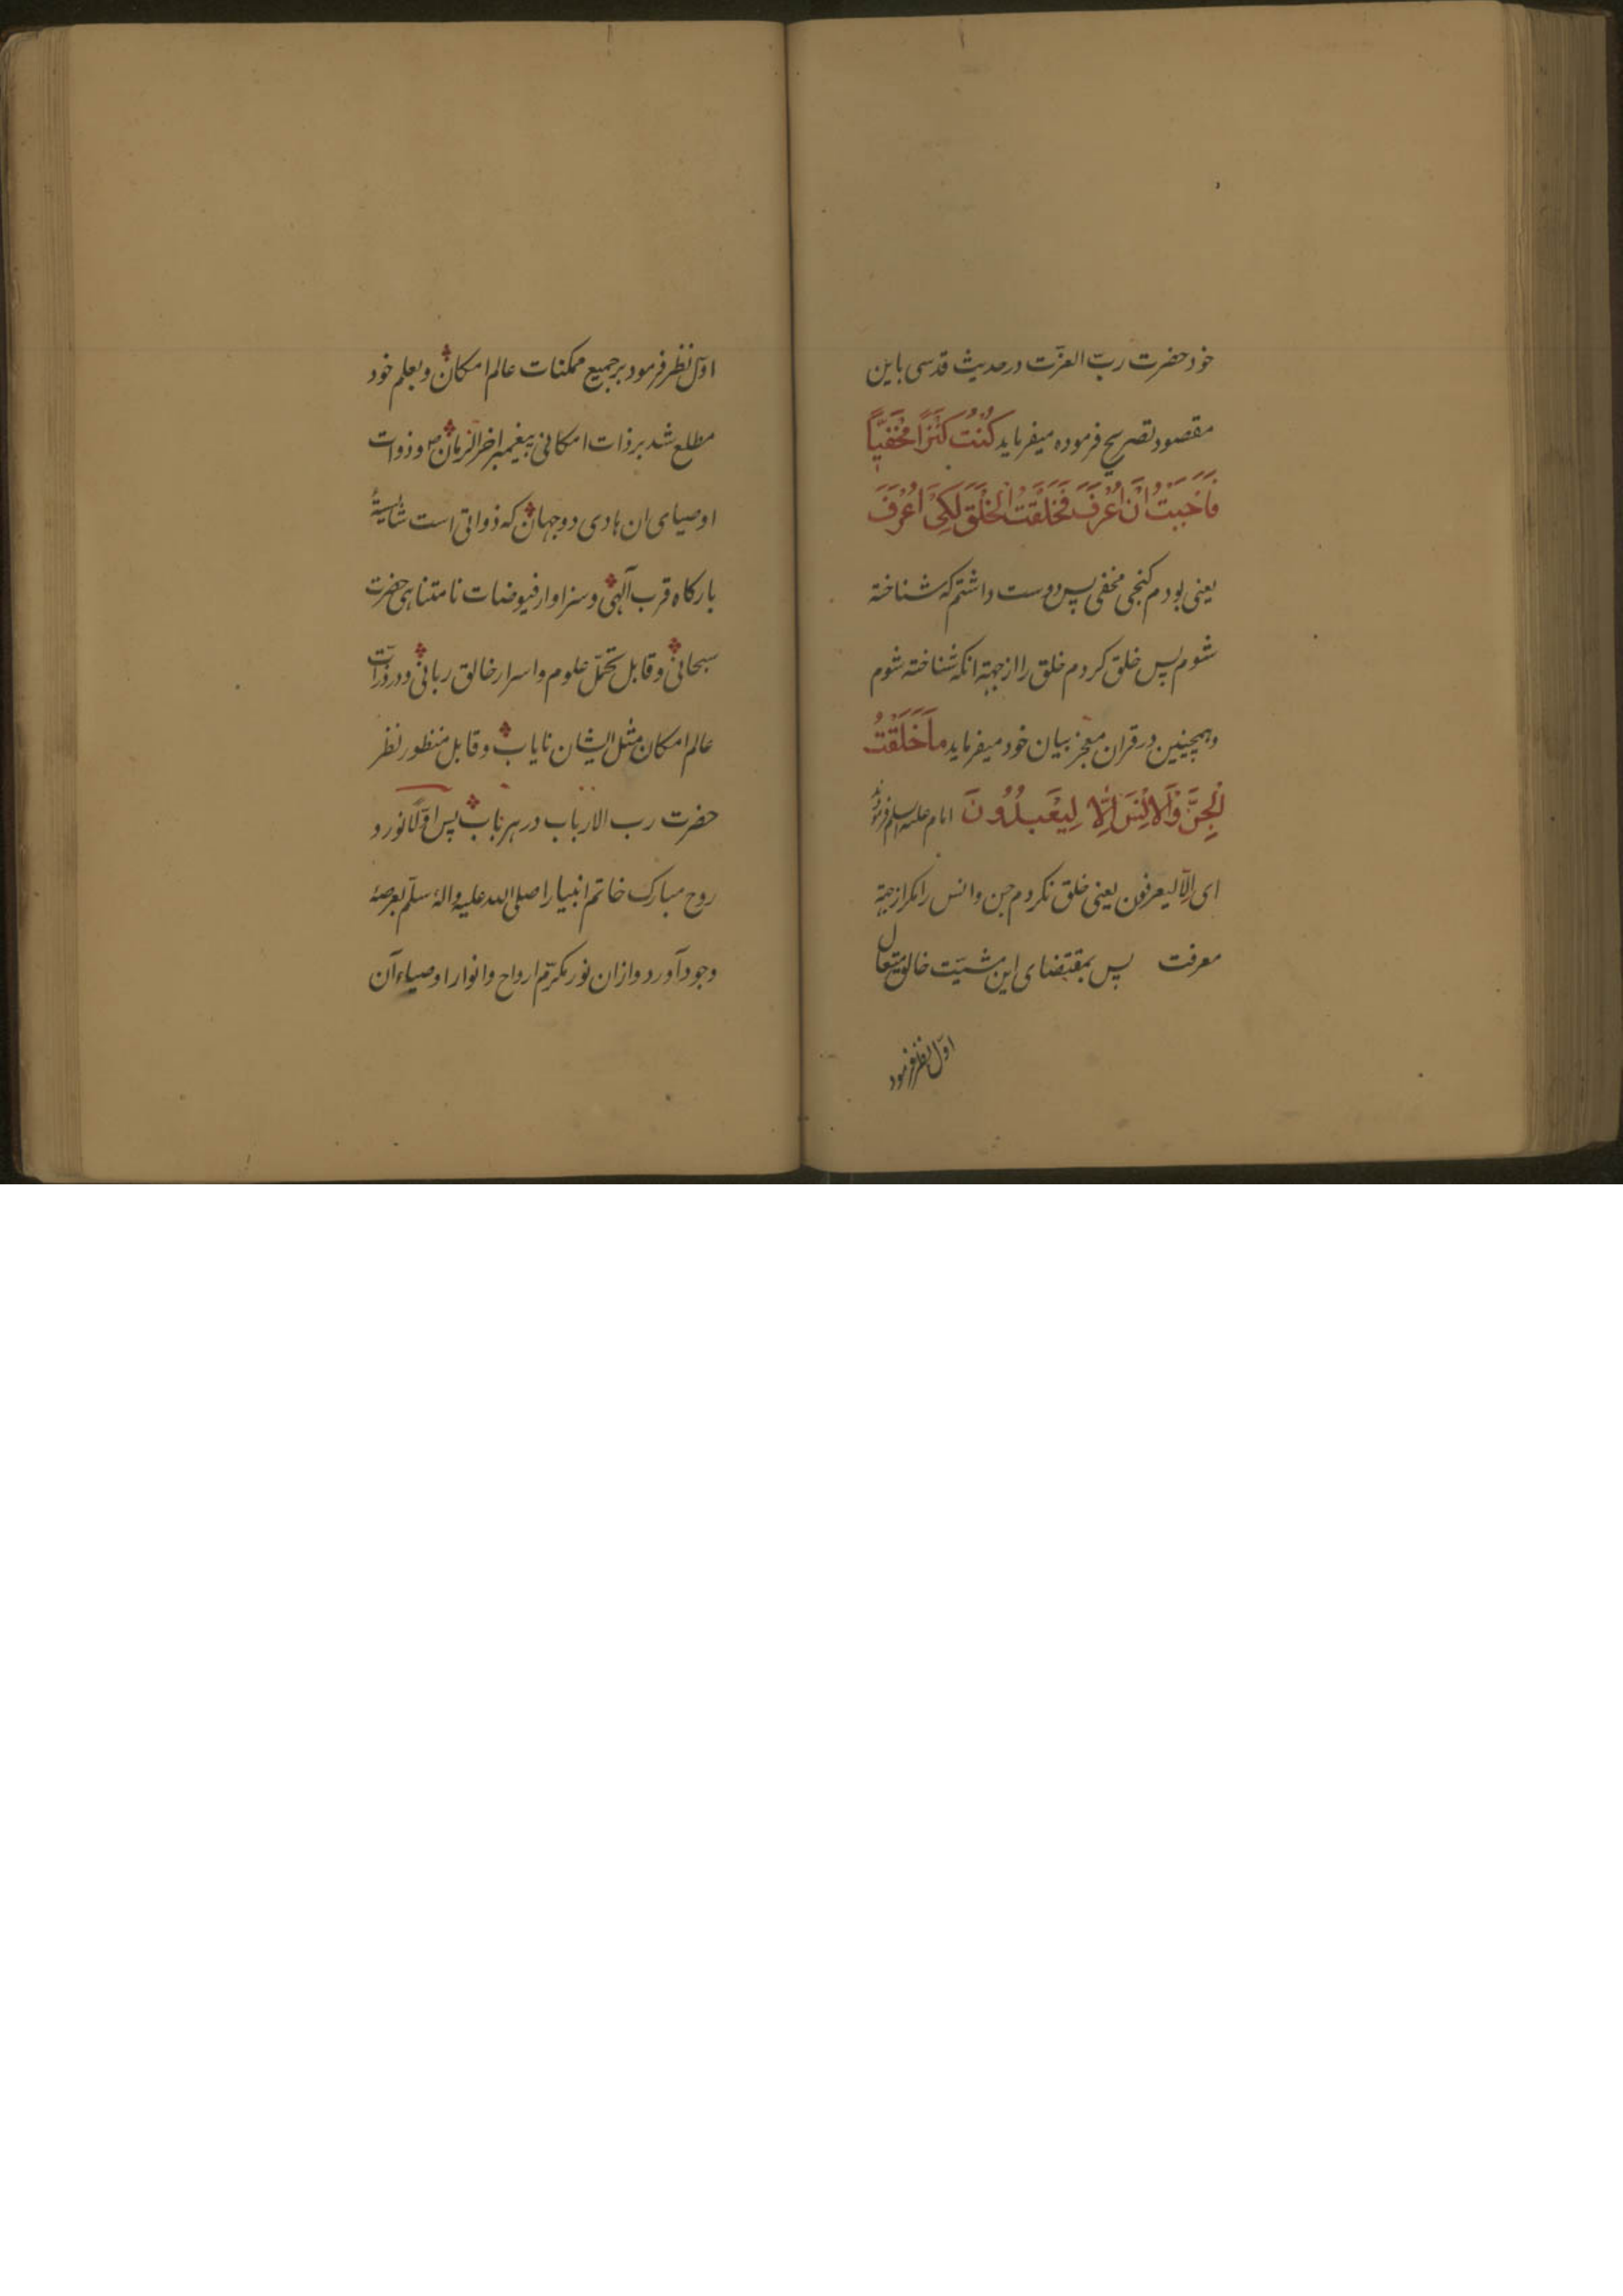 خود حضرت ربّ العزّت در حدیث قدسی باین
مقصود تصریح فرموده میفرماید کُنْتُ کَنْزَاً مَخْفِیّاً
فَاَحْبَبْتُ اَنْ اُعْرَفَ فَخَلَقْتُ الْخَلْقَ لِکَیْ اُعْرَفَ
یعنی بودم کنجی مخفی پس دوست داشتم که شناخته
شوم پس خلق کردم خلق را از جهة انکه شناخته شوم
و همچنین در قران معجز بیان خود میفرماید مَا خَلَقْتُ
الْجِنَّ وَالْاِنْسَ اِلَّا لِیَعْبُدُونَ امام علیه السلم فرمودند
ای الّا لیعرفون یعنی خلق نکردم جن و انس را مکر از جهة
معرفت پس بمقتضای این مشیّت خالق متعال
اوّل نظر فرمود
اوّل نظر فرمود بر جمیع ممکنات عالم امکان و بعلم خود
مطلع شد بر ذات امکانی پیغمبر اخر الزمان ص و ذوات
اوصیای ان هادی دو جهان که ذواتی است شایستهٔ
بارکاه قرب آلهی و سزاوار فیوضات نامتناهی حضرت
سبحانی و قابل تحمّل علوم و اسرار خالق ربانی و در ذرّات
عالم امکان مثل ایشان نایاب و قابل منظور نظر
حضرت رب الارباب در هر باب پس اوّلا نور و
روح مبارک خاتم انبیا را صلی الله علیه واله وسلّم بعرصهٔ
وجود آورد و از ان نور مکرّم ارواح و انوار اوصیاء آن